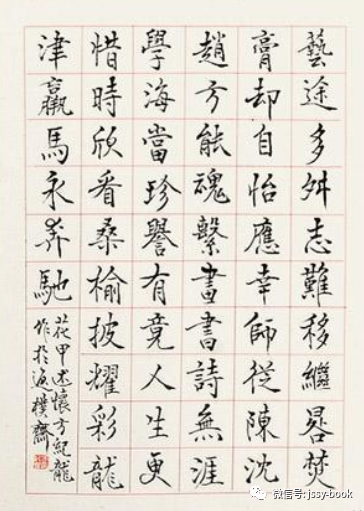 藝途多舛志難移繼晷焚
膏却自怡應幸師從陳沈
趙方能魂繫畫書詩無涯
學海當珍譽有竟人生更
惜時欣看桑榆披耀彩龍
津羸馬永奔馳
花甲述懷方紀龍
作於返樸齋
微信号: jssy-book